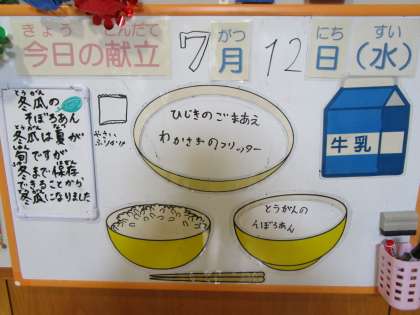 きょう こんだて
今日の献立
7
がつ
月
12
にち すい
日(水)
とうがん
冬瓜の
そぼろあん
とうがん なつ
冬瓜は夏が
しゅん
旬ですが
ふゆ ほぞん
冬まで保存
できることから
とうがん
冬瓜になりました
やさい
ふりかけ
ひじきのごまあえ
わかさぎのフリッター
牛乳
とうがんの
そぼろあん